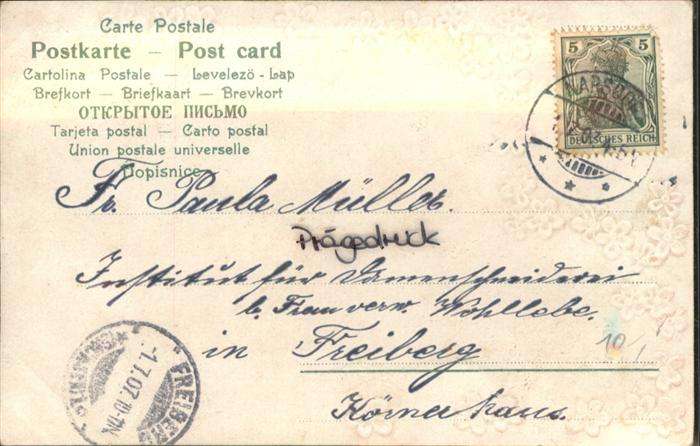 Carte Postale
Postkarte — Post card
Cartolina Postale — Levelező-Lap
Brefkort — Briefkaart — Brevkort
ОТКРЫТОЕ ПИСЬМО
Tarjeta postal — Carto postal
Union postale universelle
Dopisnice
5 5
DEUTSCHES REICH
Fr. Paula Müller.
Prägedruck
Institut für Damenschneiderei
b. Frau verw. Wohllebe.
in Freiberg
10,
Körnerhaus.
FREIBERG
1.7.07.